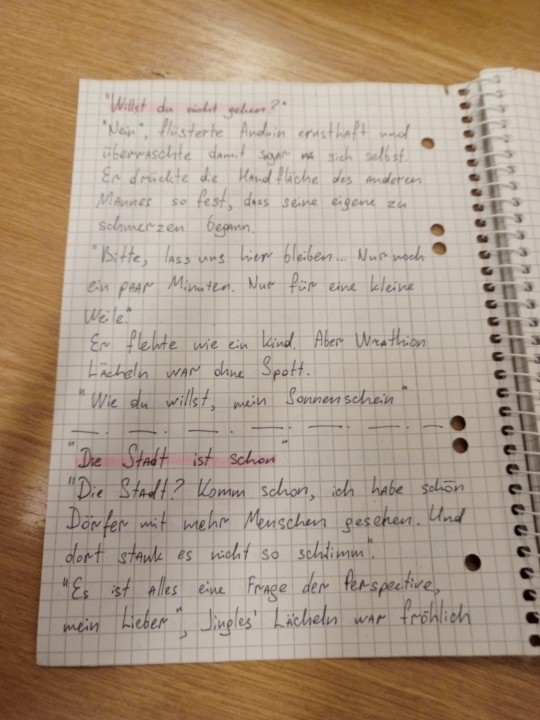 "Willst du nicht gehen?"
"Nein", flüsterte Anduin ernsthaft und
überraschte damit sogar sich selbst.
Er drückte die Handfläche des anderen
Mannes so fest, dass seine eigene zu
schmerzen begann.
"Bitte, lass uns hier bleiben... Nur noch
ein paar Minuten. Nur für eine kleine
Weile."
Er flehte wie ein Kind. Aber Wrathion
Lächeln war ohne Spott.
"Wie du willst, mein Sonnenschein"
— . — . — . — . — . — . —
"Die Stadt ist schon"
"Die Stadt? Komm schon, ich habe schön
Dörfer mit mehr Menschen gesehen. Und
dort stank es nicht so schlimm".
"Es ist alles eine Frage der Perspective,
mein Lieber", Jingles' Lächeln war fröhlich